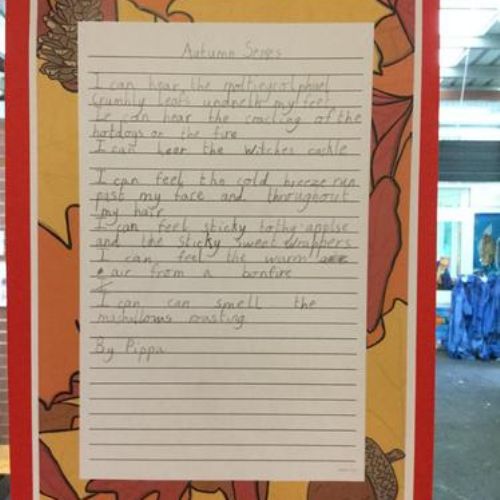 Autumn Senses
I can hear the
crumbly leafs undneth my feet
can hear the cracling of the
hotdogs on the fire
I can hear the witches cackle
I can feel the cold breeze run
past my face and throughout
my hair
I can feel sticky applse
and the sticky sweet wrappers
I can feel the warm
air from a bonfire
I can can smell the
mashallows roasting
By Pippa